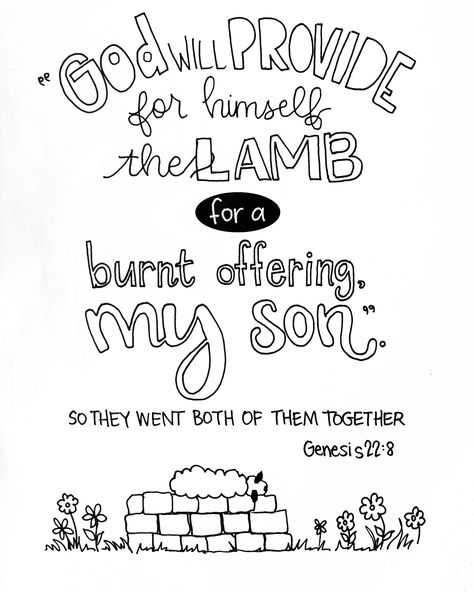 “GOd WILL PROVIDE
for himself
the LAMB
for a
burnt offering,
my son”.
SO THEY WENT BOTH OF THEM TOGETHER
Genesis 22:8